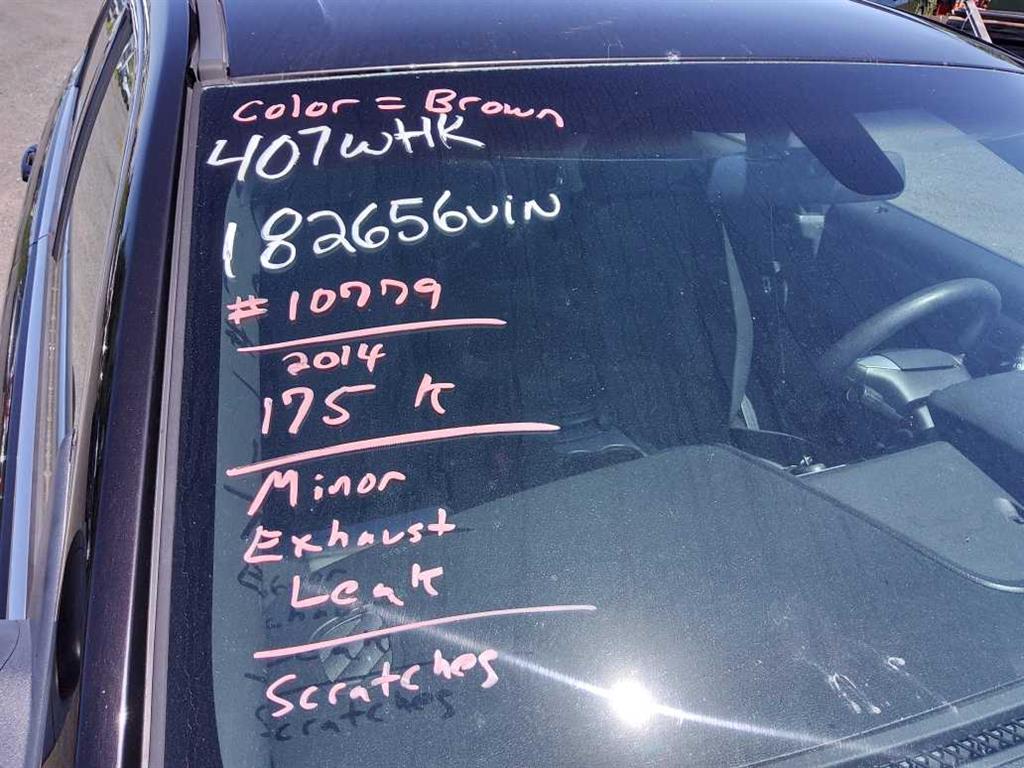 Color = Brown
407WHK
182656VIN
#10779
2014
175 K
Minor
Exhaust
Leak
Scratches